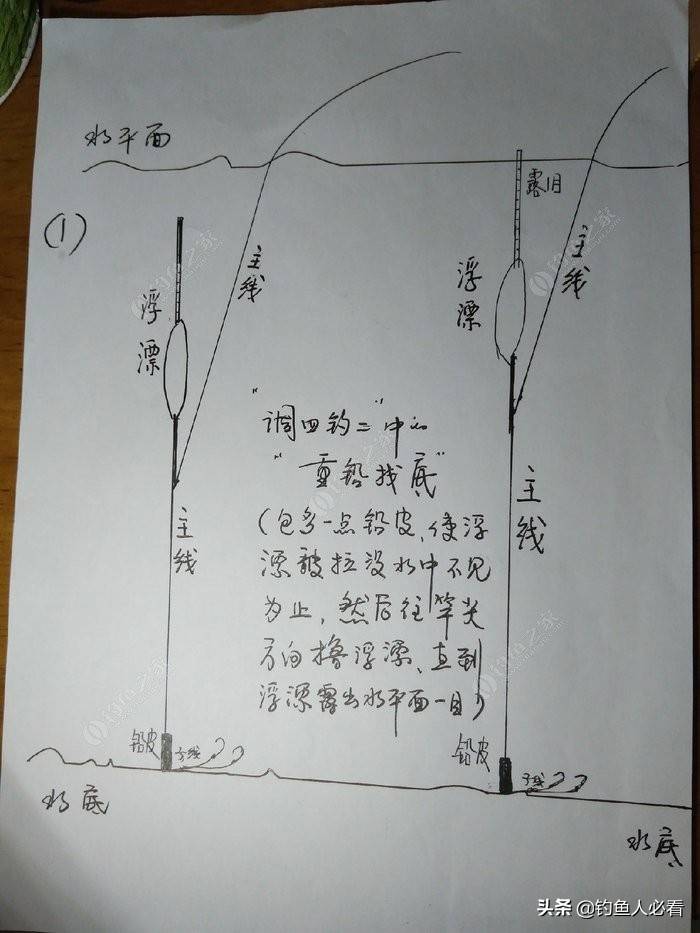 水平面
(1)
浮漂
主线
主线
铅皮
子线
水底
露1目
浮漂
主线
主线
铅皮
子线
水底
"调四钓二"中的
"重铅找底"
(包多一点铅皮、使浮
漂被拉没水中不见
为止，然后往竿尖
方向撸浮漂、直到
浮漂露出水平面一目)
钓鱼之家
钓鱼之家
钓鱼之家
钓鱼之家
钓鱼之家
头条 @钓鱼人必看